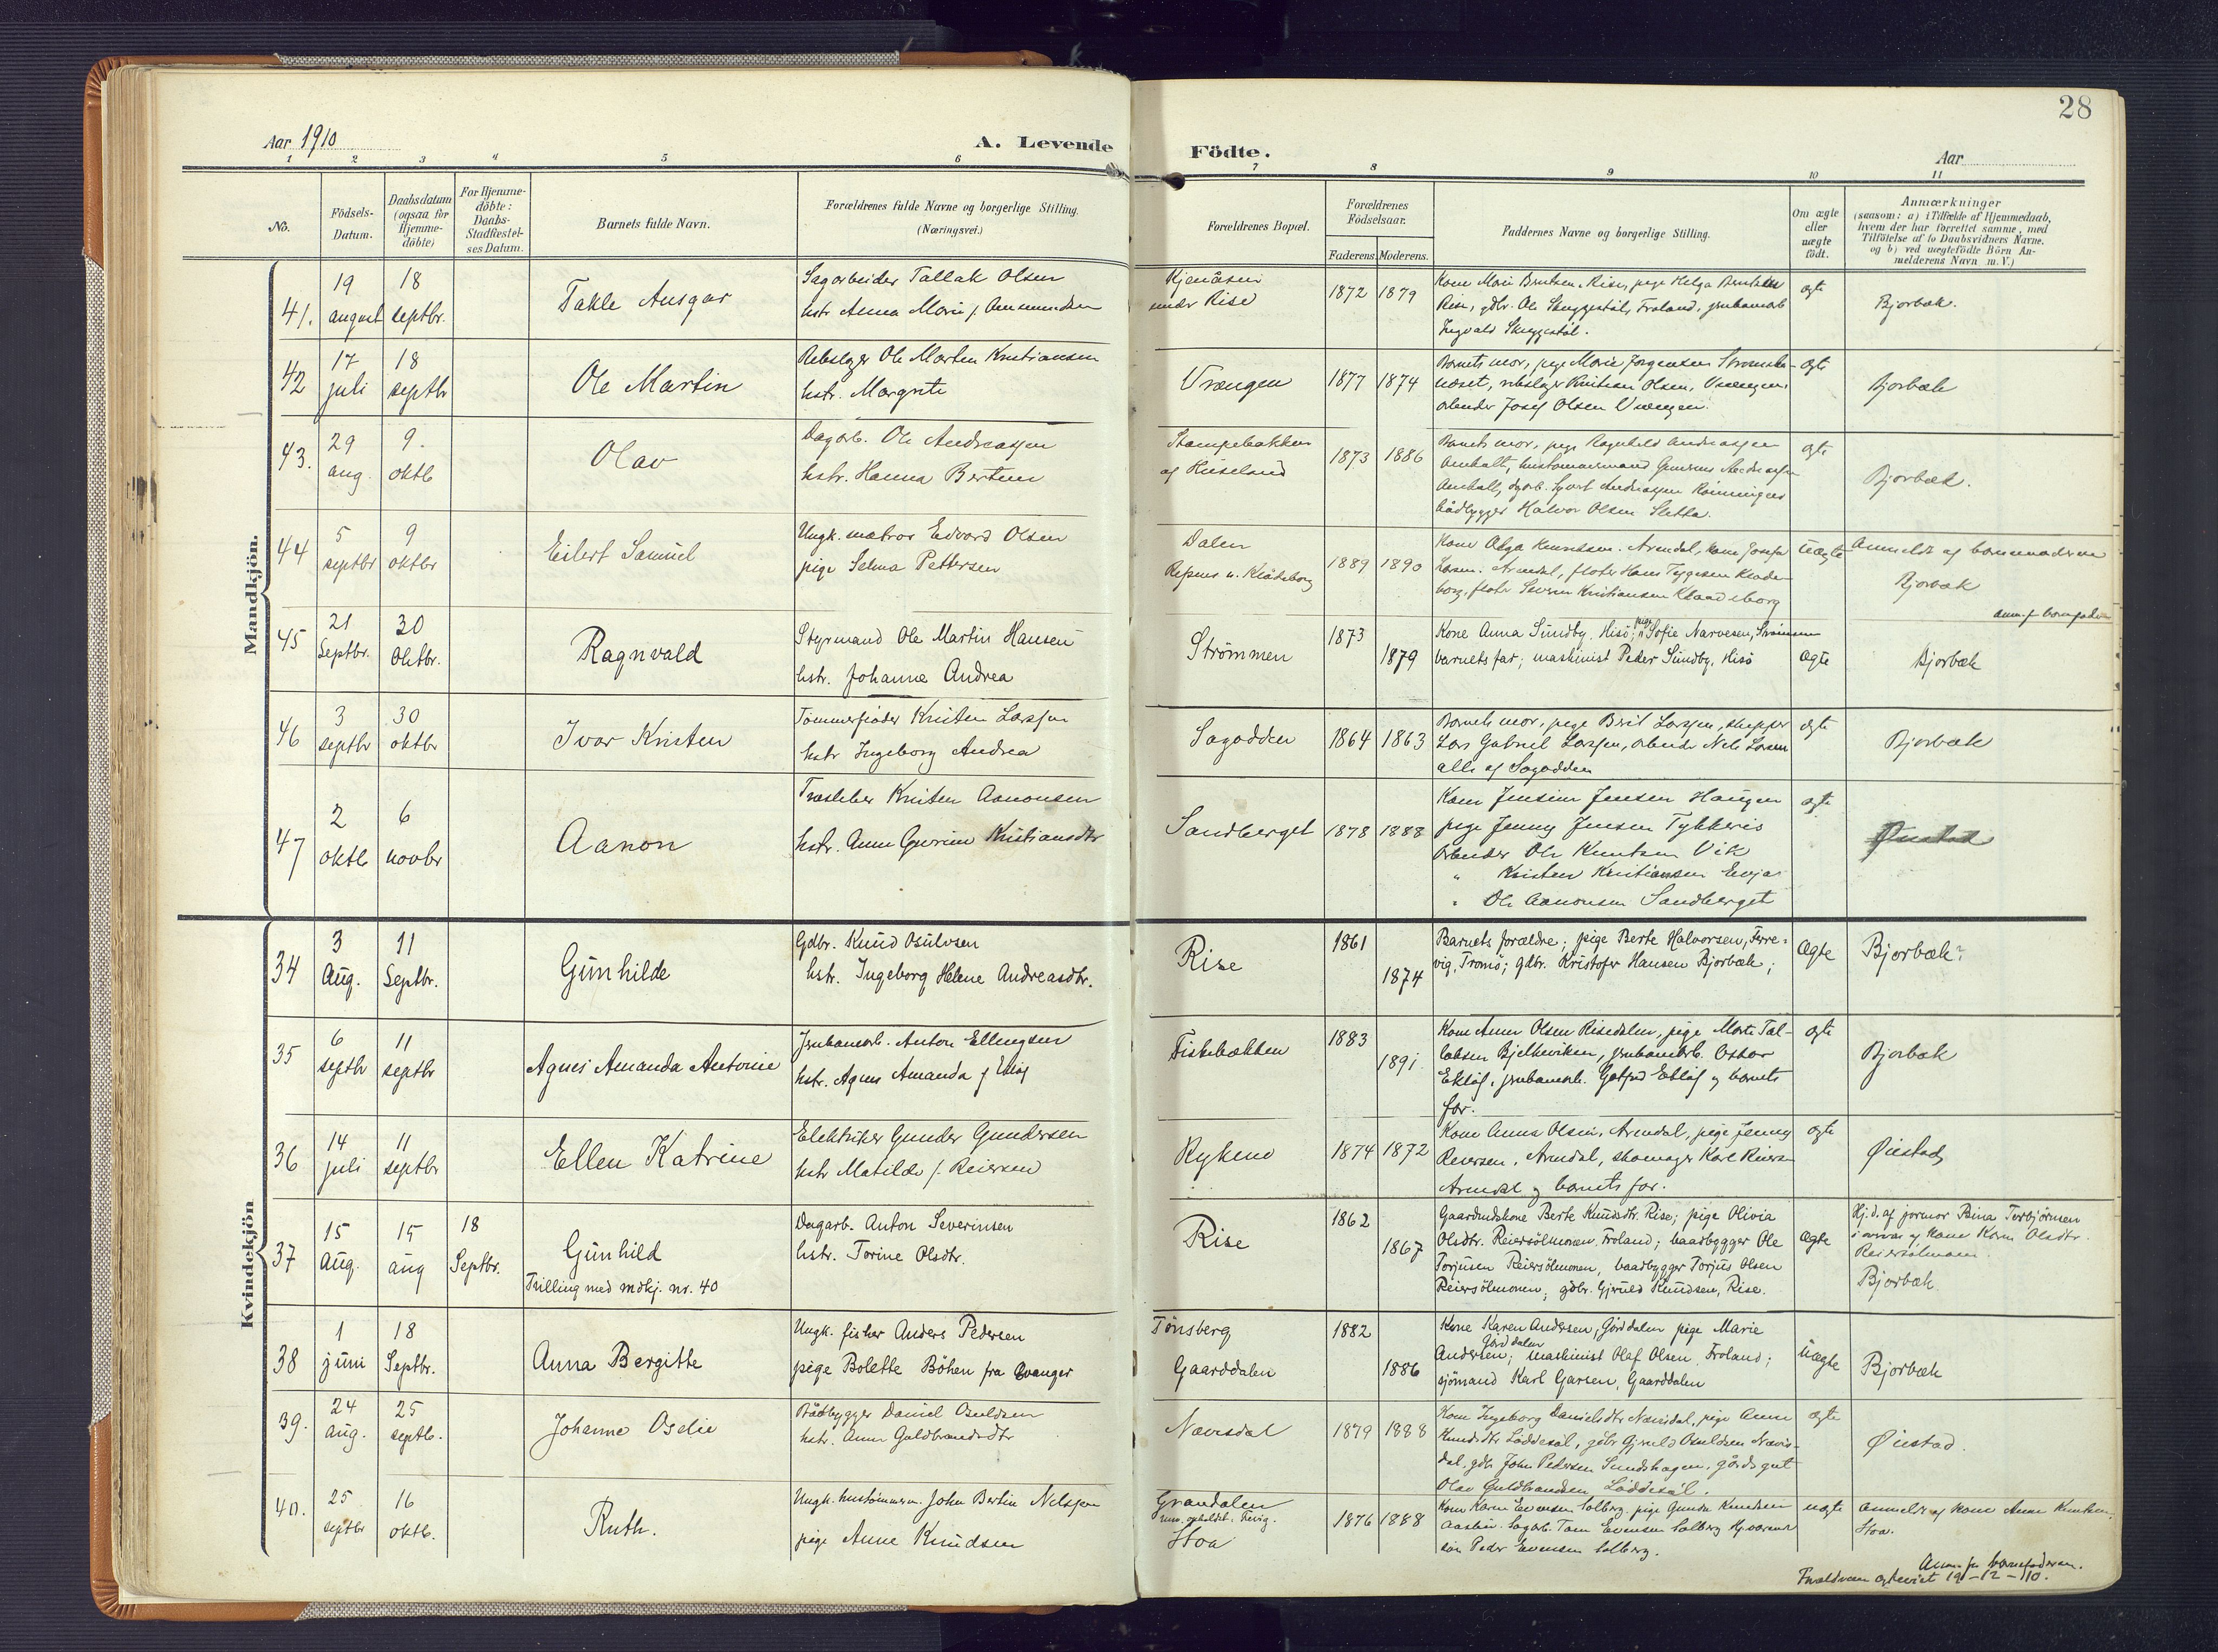 28
Aar 1910
A. Levende
Födte.
Aar
1 2 3 4 5 6 7 8 9 10 11
No.
Födsels-
Datum.
Daabsdatum
(ogsaa for
Hjemme-
döbte)
For Hjemme-
döbte:
Daabs-
Stadfæstel-
ses Datum.
Barnets fulde Navn.
Forældrenes fulde Navne og borgerlige Stilling.
(Næringsvei.)
Forældrenes Bopæl.
Forældrenes
Födselsaar.
Faderens. Moderens.
Faddernes Navne og borgerlige Stilling.
Om ægte
eller
uægte
födt.
Anmærkninger
(saasom: a) i Tilfælde af Hjemmedaab,
hvem der har forrettet samme, med
Tilföielse af to Daabsvidners Navne.
og b) ved uægtefödte Börn An-
melderens Navn m. V.)
Mandkjön.
41.
19
august
18
septbr.
Takle Ansgar
Sagarbeider Tallak Olsen
hstr Anna Marie f. Aanundsen
under Rise
1872 1879
ægte
Bjorbæk.
42
17
juli
18
septbr
Ole Martin
Rebslager Ole Morten Kristiansen
hstr. Margrete
Vrængen
1877 1874
Barnets mor, pige Marie Jorgensen
arbeider Josef Olsen Vrængen.
ægte
Bjorbæk
43.
29
aug.
9.
oktb
Olav
Dagarb. Ole Andreassen
hstr. Hanna
Stampebakken
af Huseland
1873 1886
Barnets mor, pige Ragnhild Andreassen
baadbygger Halvor Olsen Sletta.
ægte
Bjorbæk.
44
5
septbr
9
oktbr
Eilert Samuel
Ungk. matros Edvard Olsen
pige Selma Pettersen
Dalen
1889 1890
Kone Olga Knudsen. Arendal, kone Josefa
Larsen. Arendal, fløter Hans Tygesen
borg, fløter Severin Kristiansen Klaadeborg
uægte
Anmeldt af barnemoderen
Bjorbæk
45
21
Septbr.
30
Oktbr.
Ragnvald
Styrmand Ole Martin Hansen
hstr. Johanne Andrea
Strömmen
1873
1879
Kone Anna Sundby, Hisö; pige Sofie Narvesen, Strömmen
barnets far; maskinist Peder Sundby, Hisö
Ægte
Bjorbæk
46
3
septbr
30
oktbr
Ivar Kristen
Tømmerfløder Kristen Larssen
hstr Ingeborg Andrea
Sagodden
1864 1863
Barnets mor, pige Berit Larssen, skipper
Lars Gabriel Larssen, arbeider Nels Larsen
alle af Sagodden
ægte
Bjorbæk
47
2
oktb
6
novbr
Aanon
Træsliber Kristen Aanonsen
hstr. Anne Gurine Kristiansdtr
Sandberget
1878 1888
Kone Jensine Jensen Haugen
pige Jenny Jensen
Arbeider Ole Knutsen Vik
" Kristen Kristiansen
" Ole Aanonsen Sandberget
ægte
Øiestad
Kvindekjön
34
3
Aug.
11
Septbr.
Gunhilde
Gdbr. Knud Osulvsen
hstr. Ingeborg Helene Andreasdtr.
Rise
1861
1874
Barnets forældre; pige Berte Halvorsen, Fære-
vig, Tromö; gdbr. Kristofer Hansen Bjorbæk;
Ægte
Bjorbæk?
35
6
septbr
11
septbr
Agnes Amanda Antonie
Jernbanearb. Anton Ellingsen
hstr. Agnes Amanda f.
Fiskebækken
1883
1891
Kone Anna Olsen Risedalen, pige Marte Tal-
laksen Bjelkeviken, jernbanearb. Oskar
Ekløf, jernbanearb. Gotfred Ekløf og barnets
far.
ægte
Bjorbæk
36
14
juli
11
septbr
Ellen Katrine
Elektriker Gunder Gundersen
hstr Matilde f. Reiersen
Rykene
1874 1872
Kone Anna Olsen, Arendal, pige Jenny
Reiersen, Arendal, skomager Karl Reiersen
Arendal og barnets far.
ægte
Øiestad
37
15
Aug.
15
aug
18
Septbr.
Gunhild
Trilling med mdkj. nr. 40
Dagarb. Anton Severinsen
hstr. Torine Olsdtr.
Rise
1862
1867
Gaardmdskone Berte Knudsdtr. Rise; pige Olivia
Olsdtr. Reiersölmonen, Froland; baadbygger Ole
Torjusen Reiersölmonen, baadbygger Torjus Olsen
Reiersölmonen; gdbr. Gjeruld Knudsen, Rise.
Ægte
Hj.d. af jormor Bina Torbjörnsen
i nærvær af kone Karen Olsdtr.
Reiersølmonen
Bjorbæk
38
1
juni
18
Septbr.
Anna Bergitte
Ungk. fisker Anders Pedersen
pige Bolette Böhen fra Evanger
Tönsberg
Gaarddalen
1882
1886
Kone Karen Andersen, Gårddalen pige Marie
Andersen, Gårddalen; maskinist Olaf Olsen, Froland;
sjömand Karl Garsen, Gaarddalen
Uægte
Bjorbæk
39.
24
aug.
25
septb.
Johanne Oselie
Baadbygger Daniel Osuldsen
hstr. Anne Guldbrandsdtr
Nævisdal
1879 1888
Kone Ingeborg Danielsdtr Nævisdal, pige Anne
Knudsdtr Løddesøl, gdbr Gjeruld Osuldsen Nævis-
dal, gdbr John Pedersen Sundshagen, gårdsgut
Olav Guldbrandsen Løddesøl.
ægte
Øiestad.
40.
25
septbr
16
oktb.
Ruth.
Ungk. hustømmerm. John Bertin Nelssen
pige Anne Knudsen
Grandalen
Stoa
1876 1888
Kone Karen Evensen Solberg, pige Gunda Knudsen
Sagarb. Tom Evensen Solberg
Peder Evensen Solberg.
uægte
anmeldt af kone Anne Knudsen
Stoa.
Anm. fra barnefaderen.
Forældrene ægteviet 19-12-10.